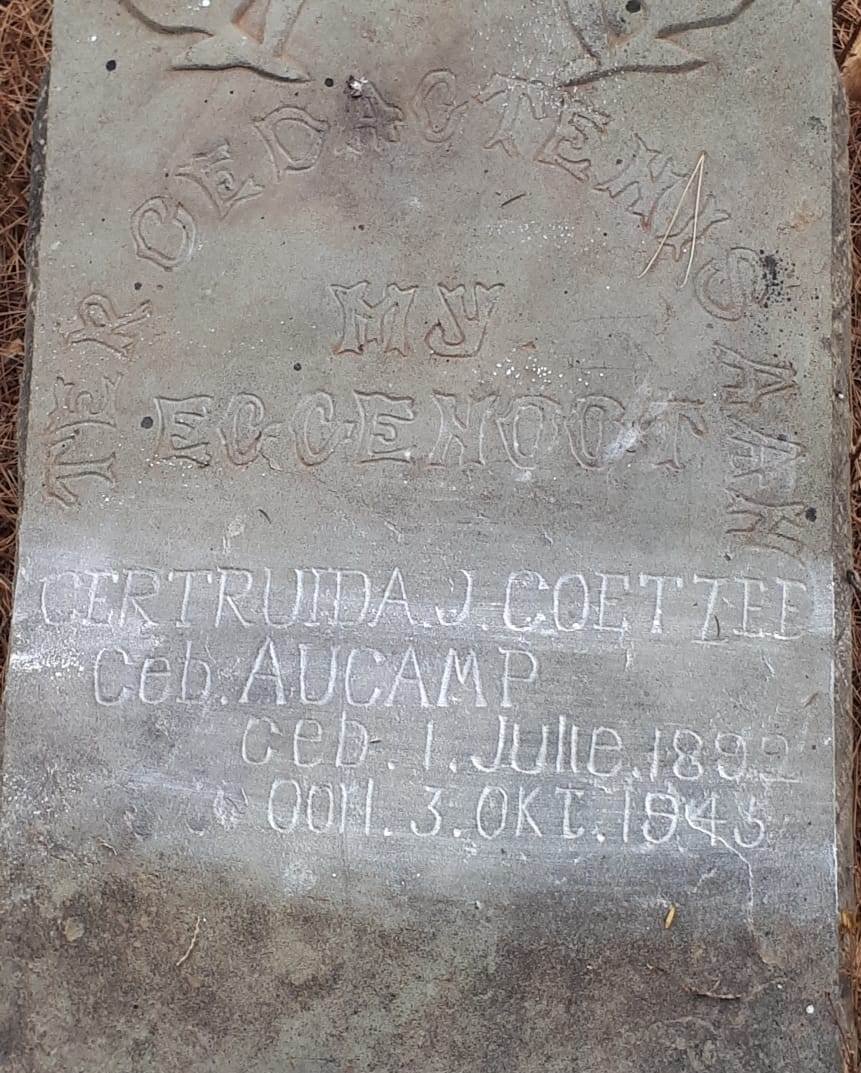 TER GEDAGTENIS AAN
MY
EGGENOOT
GERTRUIDA.J.COETZEE
Geb.AUCAMP
Geb.1.Julie.1892
OORL.3.OKT.1945